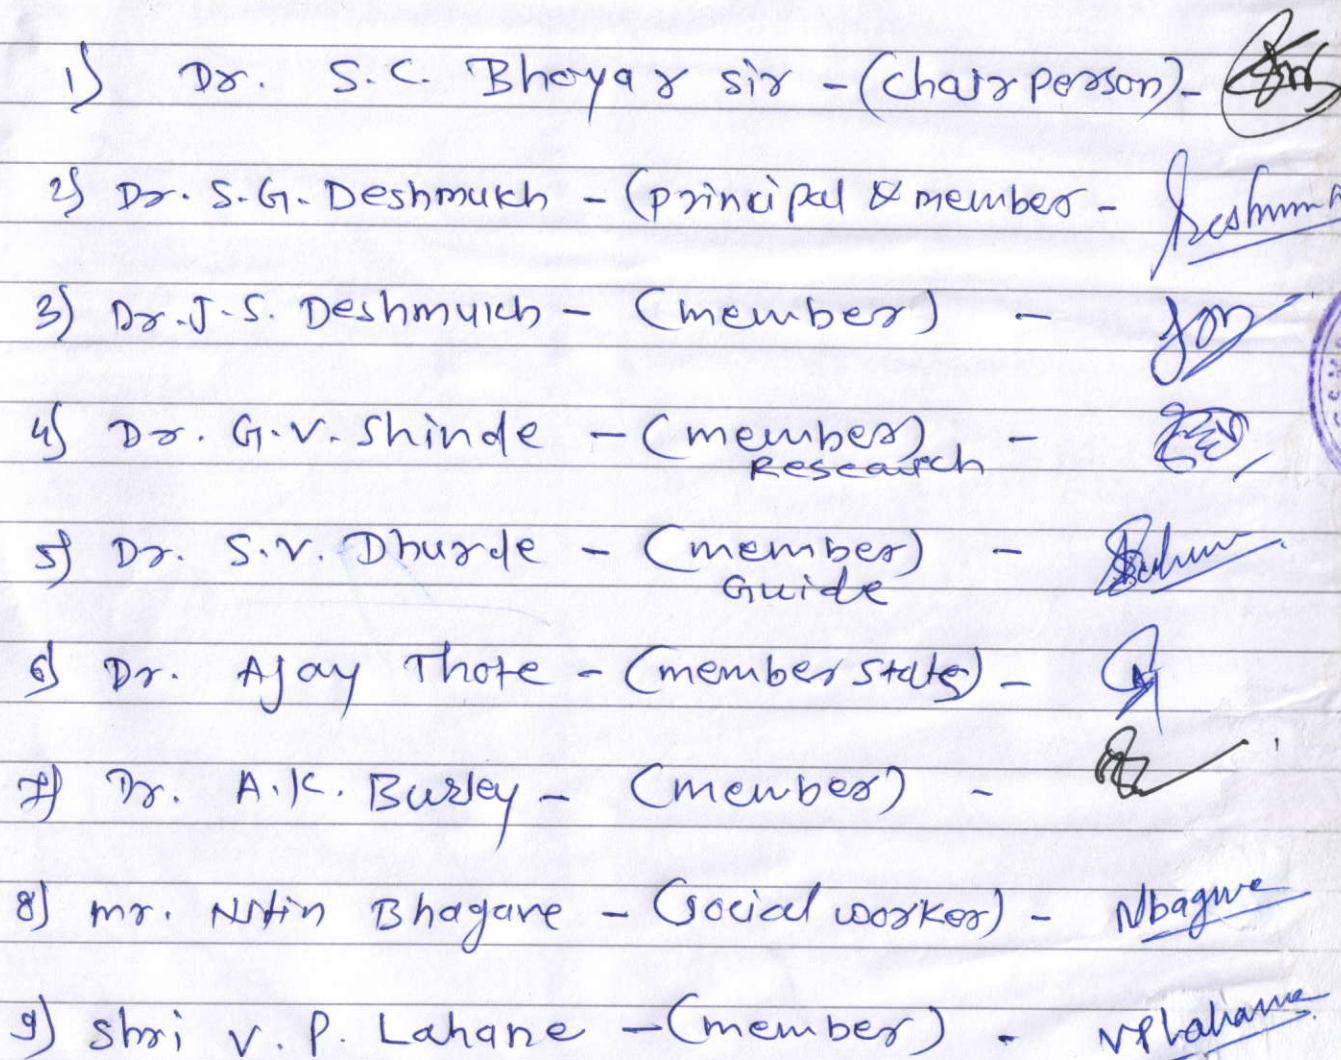 1) Dr. S.C. Bhoyar sir - (Chairperson) -
2) Dr. S.G. Deshmukh - (principal & member - Deshmukh
3) Dr. J.S. Deshmukh - (member) -
4) Dr. G.V. Shinde - (member) -
Research
5) Dr. S.V. Dhurde - (member) -
Guide
6) Dr. Ajay Thote - (member state) -
7) Dr. A.K. Burley - (member) -
8) mr. Nitin Bhagave - (social worker) - Nbagve
9) shri V.P. Lahane - (member) - VPLahane